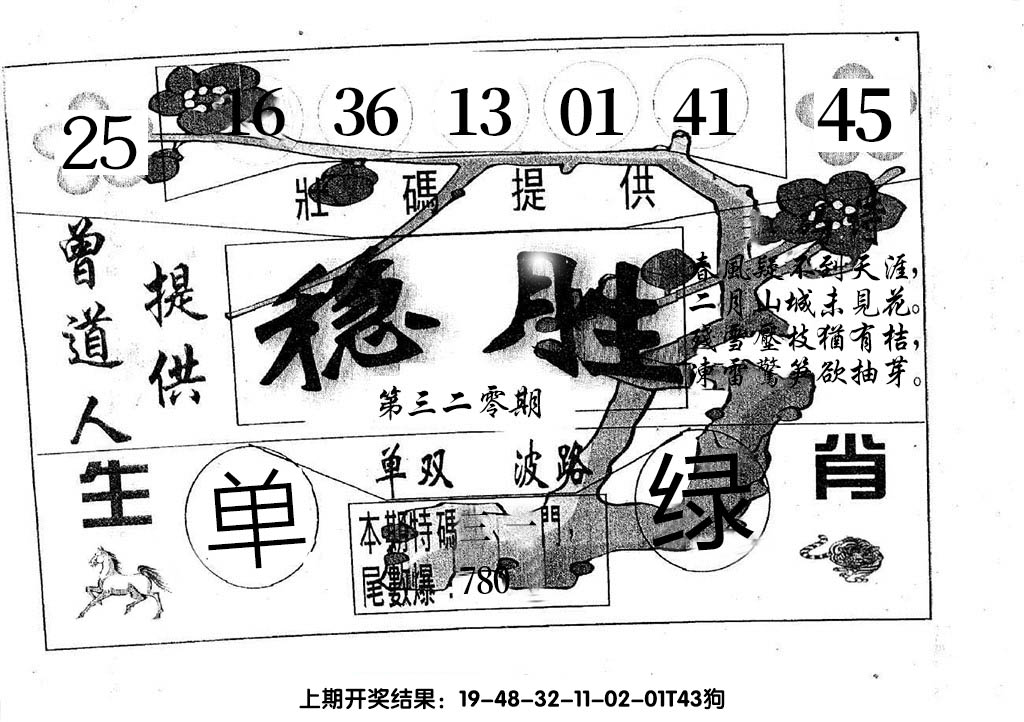 25 16 36 13 01 41 45
壯碼提供
特
曾道人
提供
稳胜
第三二零期
春風疑不到天涯，
二月山城未見花。
殘雪壓枝猶有桔，
凍雷驚笋欲抽芽。
生
肖
单双 波路
单
绿
本期特碼三、一門，
尾數爆：780
上期开奖结果：19-48-32-11-02-01T43狗